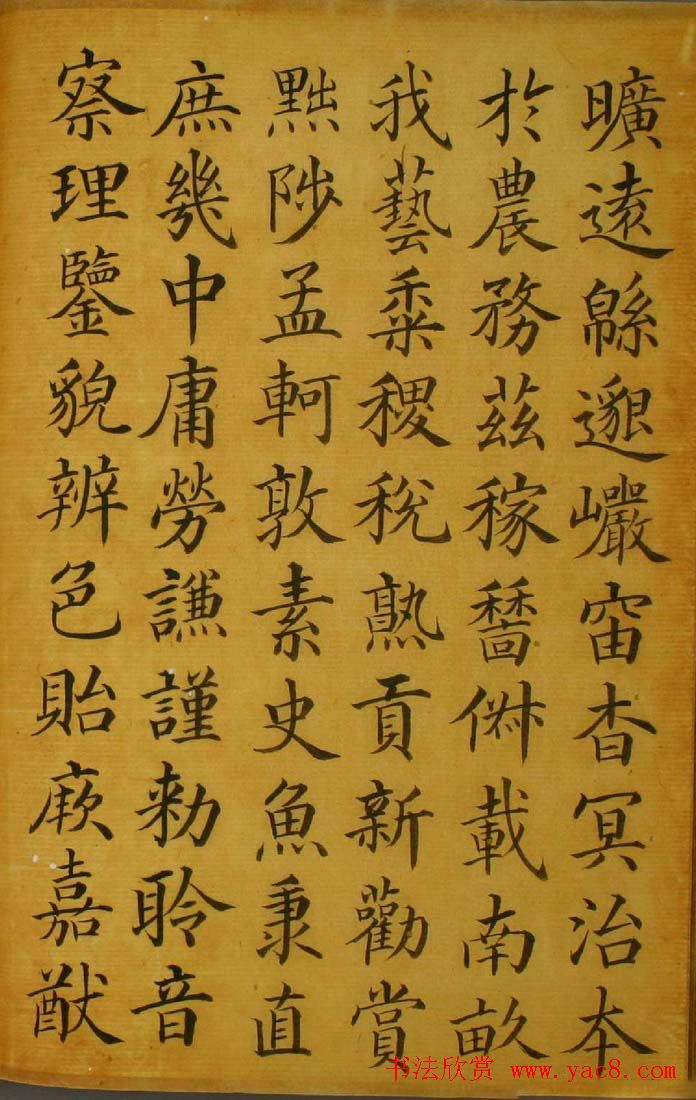 曠遠緜邈巖岫杳冥治本
於農務茲稼穡俶載南畝
我藝黍稷稅熟貢新勸賞
黜陟孟軻敦素史魚秉直
庶幾中庸勞謙謹勅聆音
察理鑒貌辨色貽厥嘉猷
书法欣赏 www.yac8.com